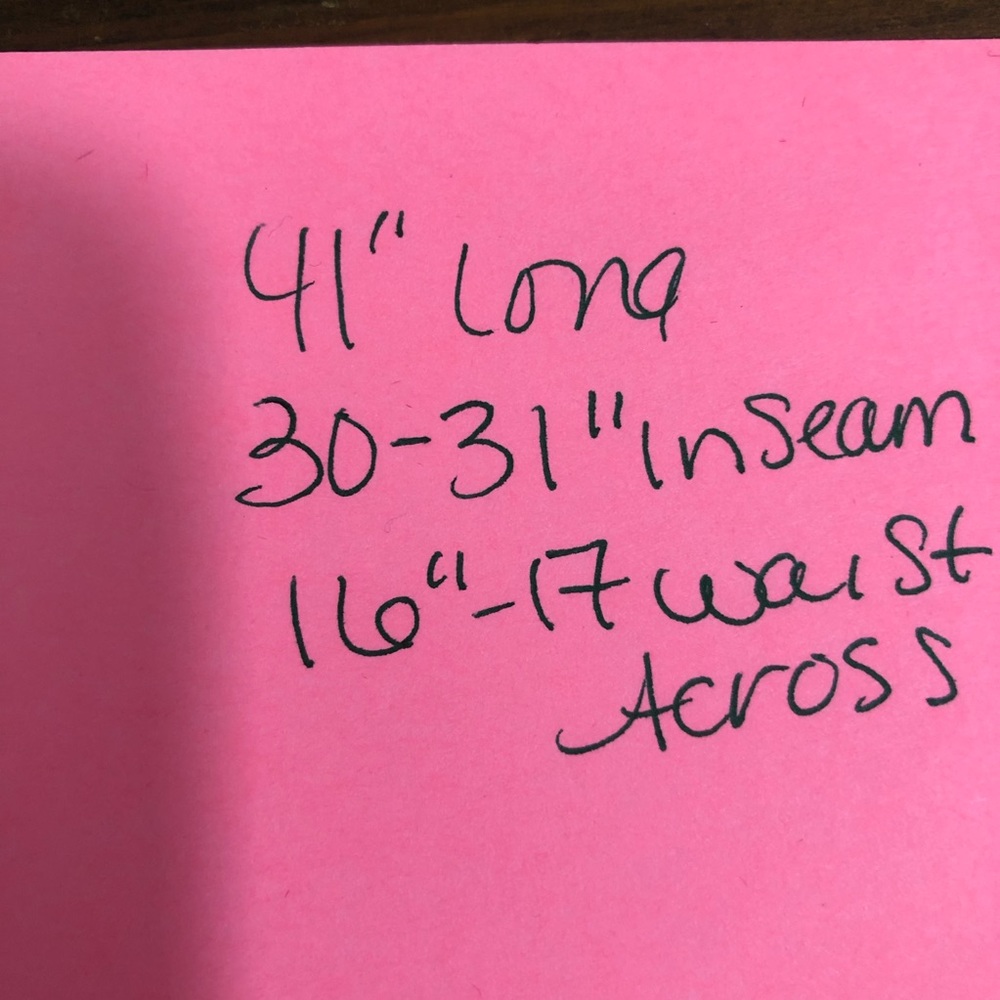 41" Long
30-31" Inseam
16"-17 waist
Across